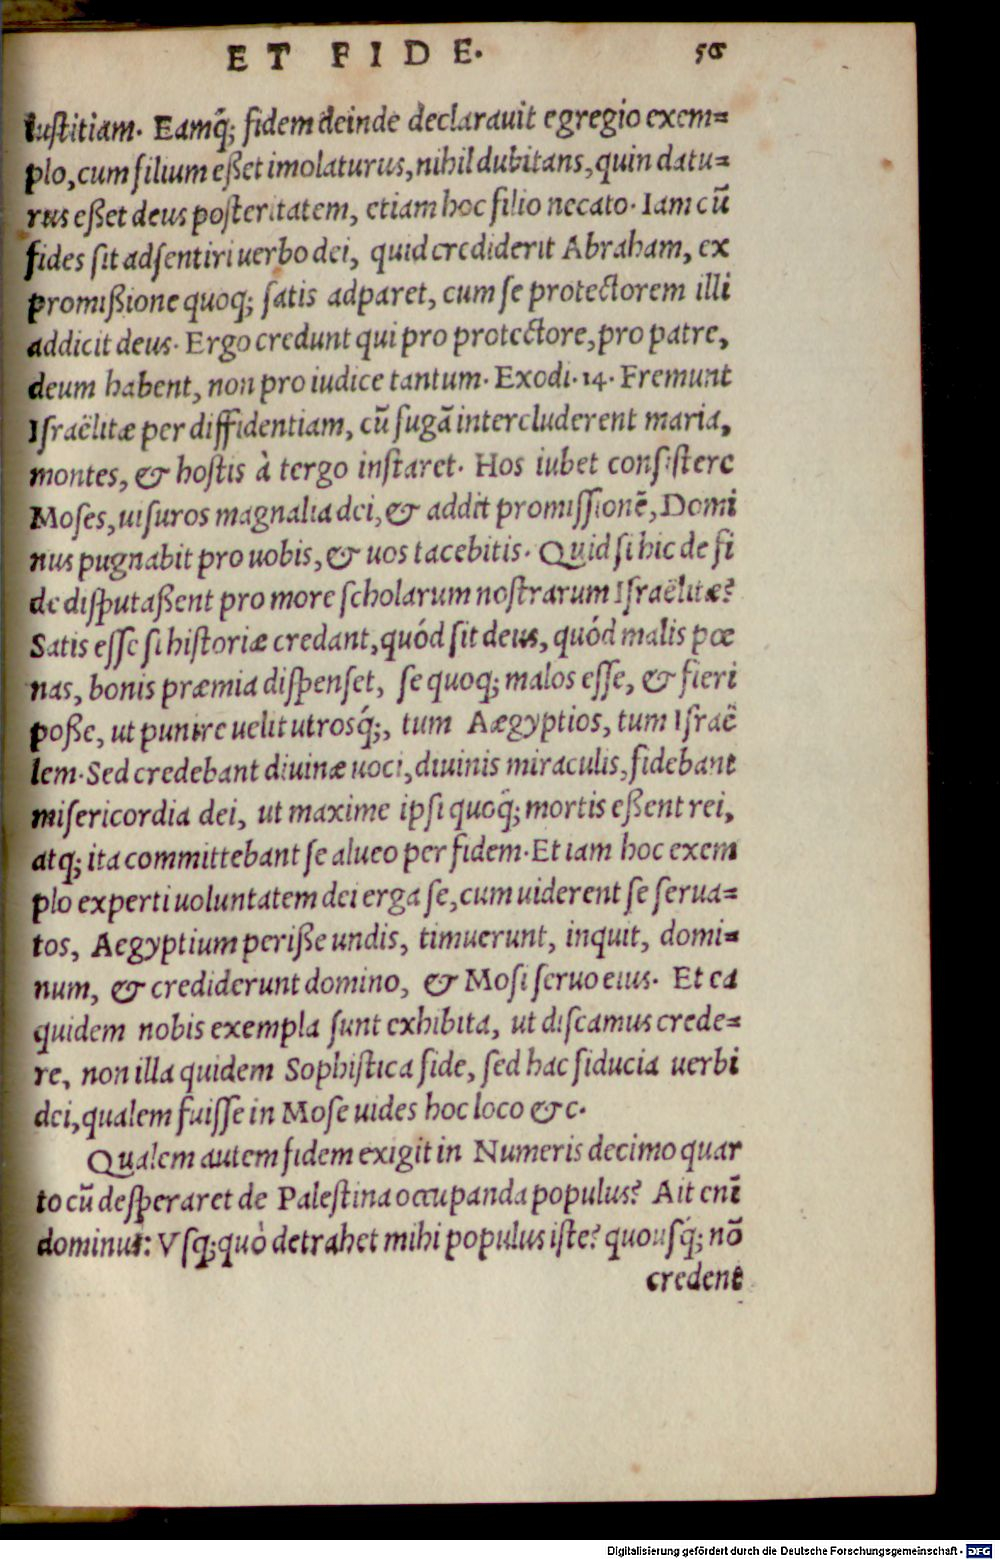 ET FIDE.
iustitiam. Eamq́; fidem deinde declarauit egregio exem=
plo, cum filium eßet imolaturus, nihil dubitans, quin datu=
rus eßet deus poſteritatem, etiam hoc filio necato. Iam cū
fides ſit adſentiri uerbo dei, quid crediderit Abraham, ex
promißione quoq; ſatis adparet, cum ſe protectorem illi
addicit deus. Ergo credunt qui pro protectore, pro patre,
deum habent, non pro iudice tantum. Exodi. 14. Fremunt
Iſraëlitæ per diffidentiam, cū fugā intercluderent maria,
montes, & hoſtis à tergo inſtaret. Hos iubet conſiſtere
Moſes, uiſuros magnalia dei, & addit promiſſionē, Domi
nus pugnabit pro uobis, & uos tacebitis. Quid ſi hic de fi
de diſputaßent pro more ſcholarum noſtrarum Iſraëlitæ?
Satis eſſe ſi hiſtoriæ credant, quód ſit deus, quód malis pœ
nas, bonis præmia diſpenſet, ſe quoq; malos eſſe, & fieri
poße, ut punire uelit utrosq́;, tum Aegyptios, tum Iſraë
lem. Sed credebant diuinæ uoci, diuinis miraculis, fidebant
miſericordia dei, ut maxime ipſi quoq́; mortis eßent rei,
atq; ita committebant ſe alueo per fidem. Et iam hoc exem
plo experti uoluntatem dei erga ſe, cum uiderent ſe ſerua=
tos, Aegyptium periße undis, timuerunt, inquit, domi=
num, & crediderunt domino, & Moſi ſeruo eius. Et ea
quidem nobis exempla ſunt exhibita, ut diſcamus crede=
re, non illa quidem Sophiſtica fide, ſed hac fiducia uerbi
dei, qualem fuiſſe in Moſe uides hoc loco &c.
Qualem autem fidem exigit in Numeris decimo quar
to cū deſperaret de Palestina occupanda populus? Ait enī
dominus: Vſq; quò detrahet mihi populus iſte? quouſq́; nō
credent
Digitalisierung gefördert durch die Deutsche Forschungsgemeinschaft - DFG